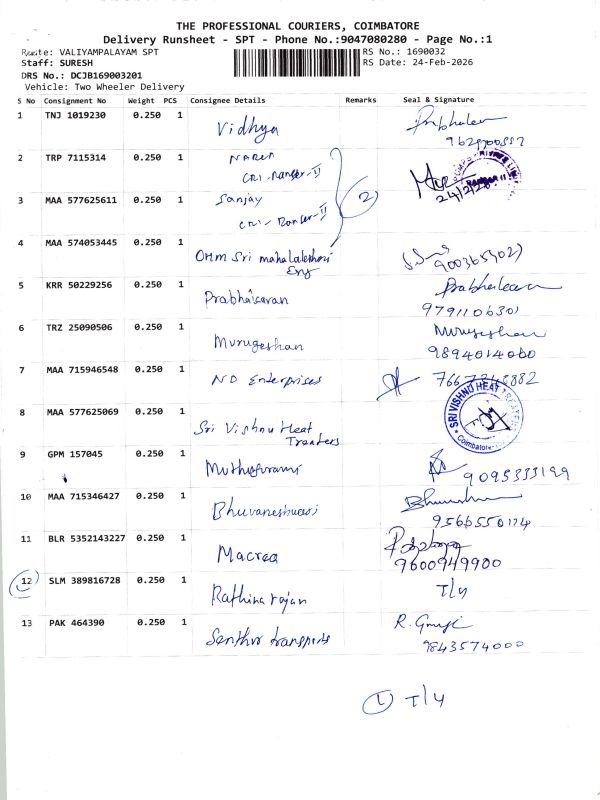 THE PROFESSIONAL COURIERS, COIMBATORE
Delivery Runsheet - SPT - Phone No.:9047080280 - Page No.:1
Route: VALIYAMPALAYAM SPT
RS No.: 1690032
Staff: SURESH
RS Date: 24-Feb-2026
DRS No.: DCJB169003201
Vehicle: Two Wheeler Delivery
S No Consignment No Weight PCS Consignee Details Remarks Seal & Signature
1 TNJ 1019230 0.250 1 Vidhya
2 TRP 7115314 0.250 1
24/2/26
3 MAA 577625611 0.250 1 Sanjay
2
4 MAA 574053445 0.250 1 OHM Sri mahalakshmi
Eng
5 KRR 50229256 0.250 1 Prabhakaran
9791106301
6 TRZ 25090506 0.250 1 Murugeshan Murugeshan
9894014060
7 MAA 715946548 0.250 1 ND Enterprises
8 MAA 577625069 0.250 1 Sri Vishnu Heat
Treaters
SRI VISHNU HEAT TREATERS
Coimbatore
9 GPM 157045 0.250 1
9095333199
10 MAA 715346427 0.250 1 Bhuvaneshwari
11 BLR 5352143227 0.250 1 Macrea
9600949900
12 SLM 389816728 0.250 1 Rathina rajan T/4
13 PAK 464390 0.250 1 Senthur transports
9843574000
1 T/4